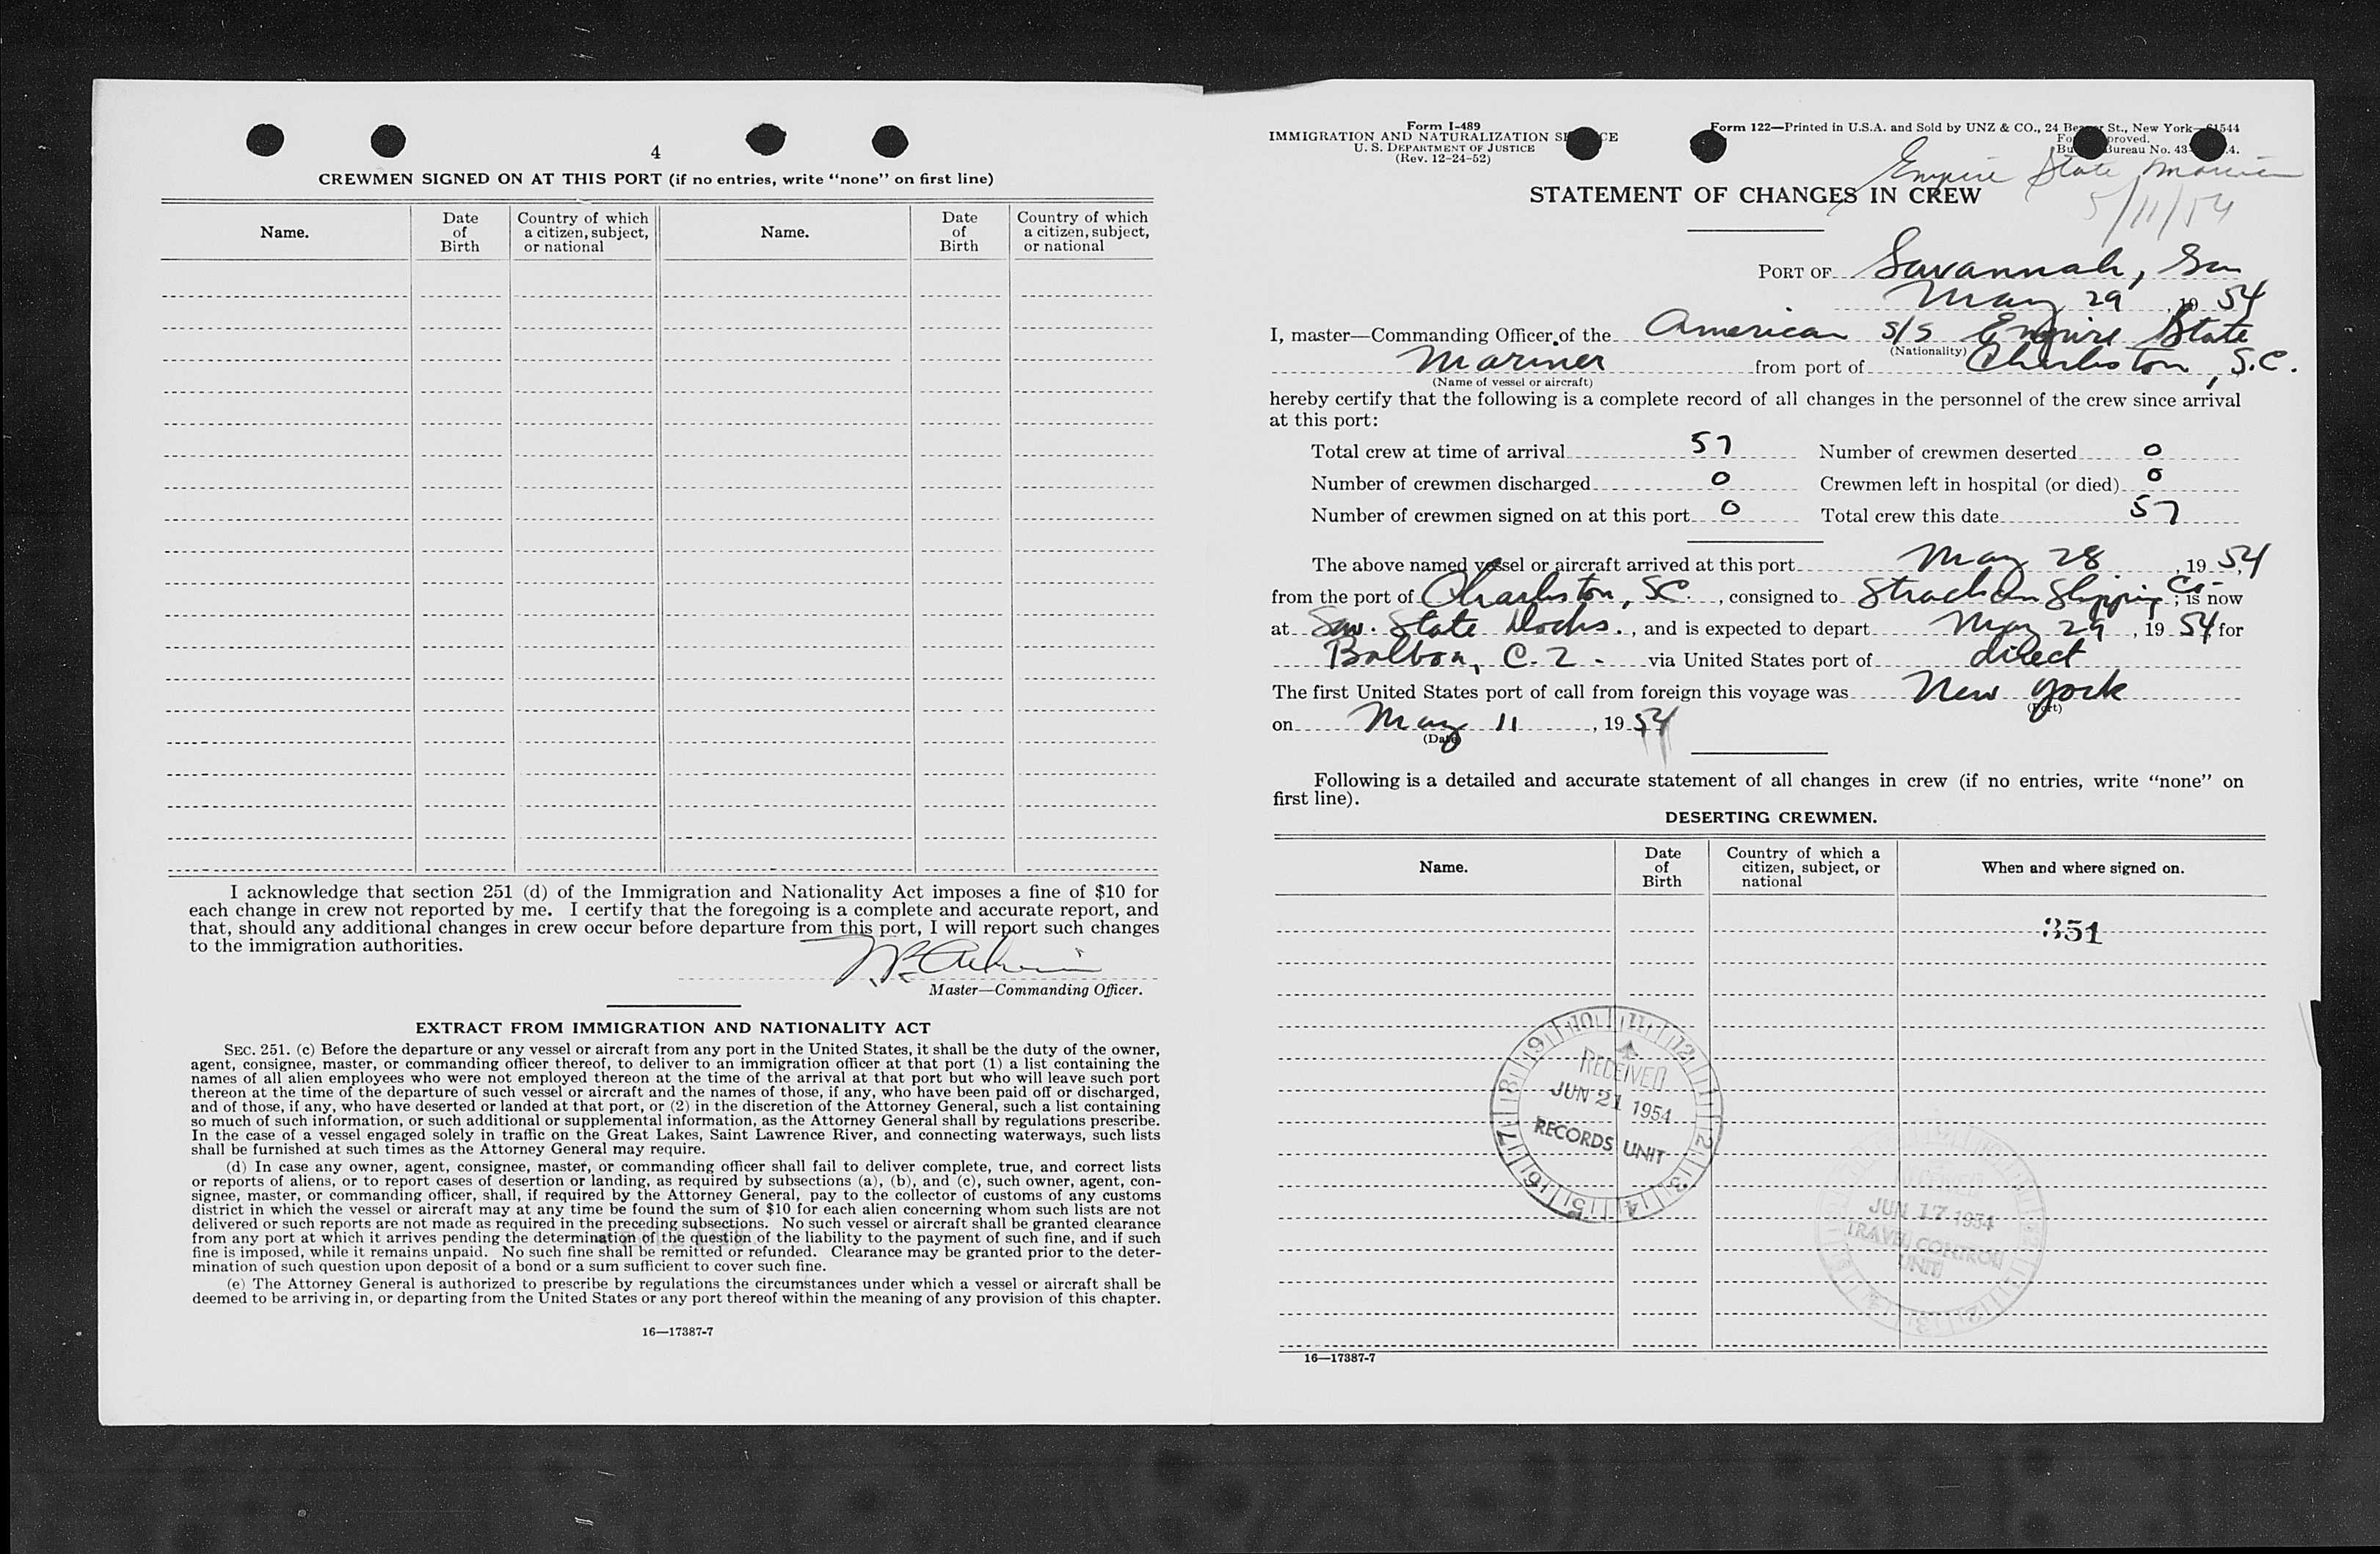 4
CREWMEN SIGNED ON AT THIS PORT (if no entries, write “none” on first line)
Name.
Date of Birth
Country of which a citizen, subject, or national
Name.
Date of Birth
Country of which a citizen, subject, or national
I acknowledge that section 251 (d) of the Immigration and Nationality Act imposes a fine of $10 for
each change in crew not reported by me. I certify that the foregoing is a complete and accurate report, and
that, should any additional changes in crew occur before departure from this port, I will report such changes
to the immigration authorities.
Master—Commanding Officer.
EXTRACT FROM IMMIGRATION AND NATIONALITY ACT
SEC. 251. (c) Before the departure or any vessel or aircraft from any port in the United States, it shall be the duty of the owner,
agent, consignee, master, or commanding officer thereof, to deliver to an immigration officer at that port (1) a list containing the
names of all alien employees who were not employed thereon at the time of the arrival at that port but who will leave such port
thereon at the time of the departure of such vessel or aircraft and the names of those, if any, who have been paid off or discharged,
and of those, if any, who have deserted or landed at that port, or (2) in the discretion of the Attorney General, such a list containing
so much of such information, or such additional or supplemental information, as the Attorney General shall by regulations prescribe.
In the case of a vessel engaged solely in traffic on the Great Lakes, Saint Lawrence River, and connecting waterways, such lists
shall be furnished at such times as the Attorney General may require.
(d) In case any owner, agent, consignee, master, or commanding officer shall fail to deliver complete, true, and correct lists
or reports of aliens, or to report cases of desertion or landing, as required by subsections (a), (b), and (c), such owner, agent, con-
signee, master, or commanding officer, shall, if required by the Attorney General, pay to the collector of customs of any customs
district in which the vessel or aircraft may at any time be found the sum of $10 for each alien concerning whom such lists are not
delivered or such reports are not made as required in the preceding subsections. No such vessel or aircraft shall be granted clearance
from any port at which it arrives pending the determination of the question of the liability to the payment of such fine, and if such
fine is imposed, while it remains unpaid. No such fine shall be remitted or refunded. Clearance may be granted prior to the deter-
mination of such question upon deposit of a bond or a sum sufficient to cover such fine.
(e) The Attorney General is authorized to prescribe by regulations the circumstances under which a vessel or aircraft shall be
deemed to be arriving in, or departing from the United States or any port thereof within the meaning of any provision of this chapter.
16—17387-7
Form I-489
IMMIGRATION AND NATURALIZATION
U. S. DEPARTMENT OF JUSTICE
(Rev. 12-24-52)
Form 122—Printed in U.S.A. and Sold by UNZ & CO., 24 St., New York
Bureau No. 43
Empire State Mariner
5/11/54
STATEMENT OF CHANGES IN CREW
PORT OF Savannah, Ga
May 29, 19 54
I, master—Commanding Officer of the American s/s Empire State
(Nationality)
Mariner from port of Charleston, S.C.
(Name of vessel or aircraft)
hereby certify that the following is a complete record of all changes in the personnel of the crew since arrival
at this port:
Total crew at time of arrival 57 Number of crewmen deserted 0
Number of crewmen discharged 0 Crewmen left in hospital (or died) 0
Number of crewmen signed on at this port 0 Total crew this date 57
The above named vessel or aircraft arrived at this port May 28, 19 54
from the port of Charleston, SC., consigned to Strachan Shipping Co.; is now
at Sav. State Docks., and is expected to depart May 29, 19 54 for
Balboa, C.Z. via United States port of direct
The first United States port of call from foreign this voyage was New York
(Port)
on May 11, 19 54
(Date)
Following is a detailed and accurate statement of all changes in crew (if no entries, write “none” on
first line).
DESERTING CREWMEN.
Name.
Date of Birth
Country of which a citizen, subject, or national
When and where signed on.
351
RECEIVED
JUN 21 1954
RECORDS UNIT
RECEIVED
JUN 17 1954
TRAVEL CONTROL
UNIT
16—17387-7